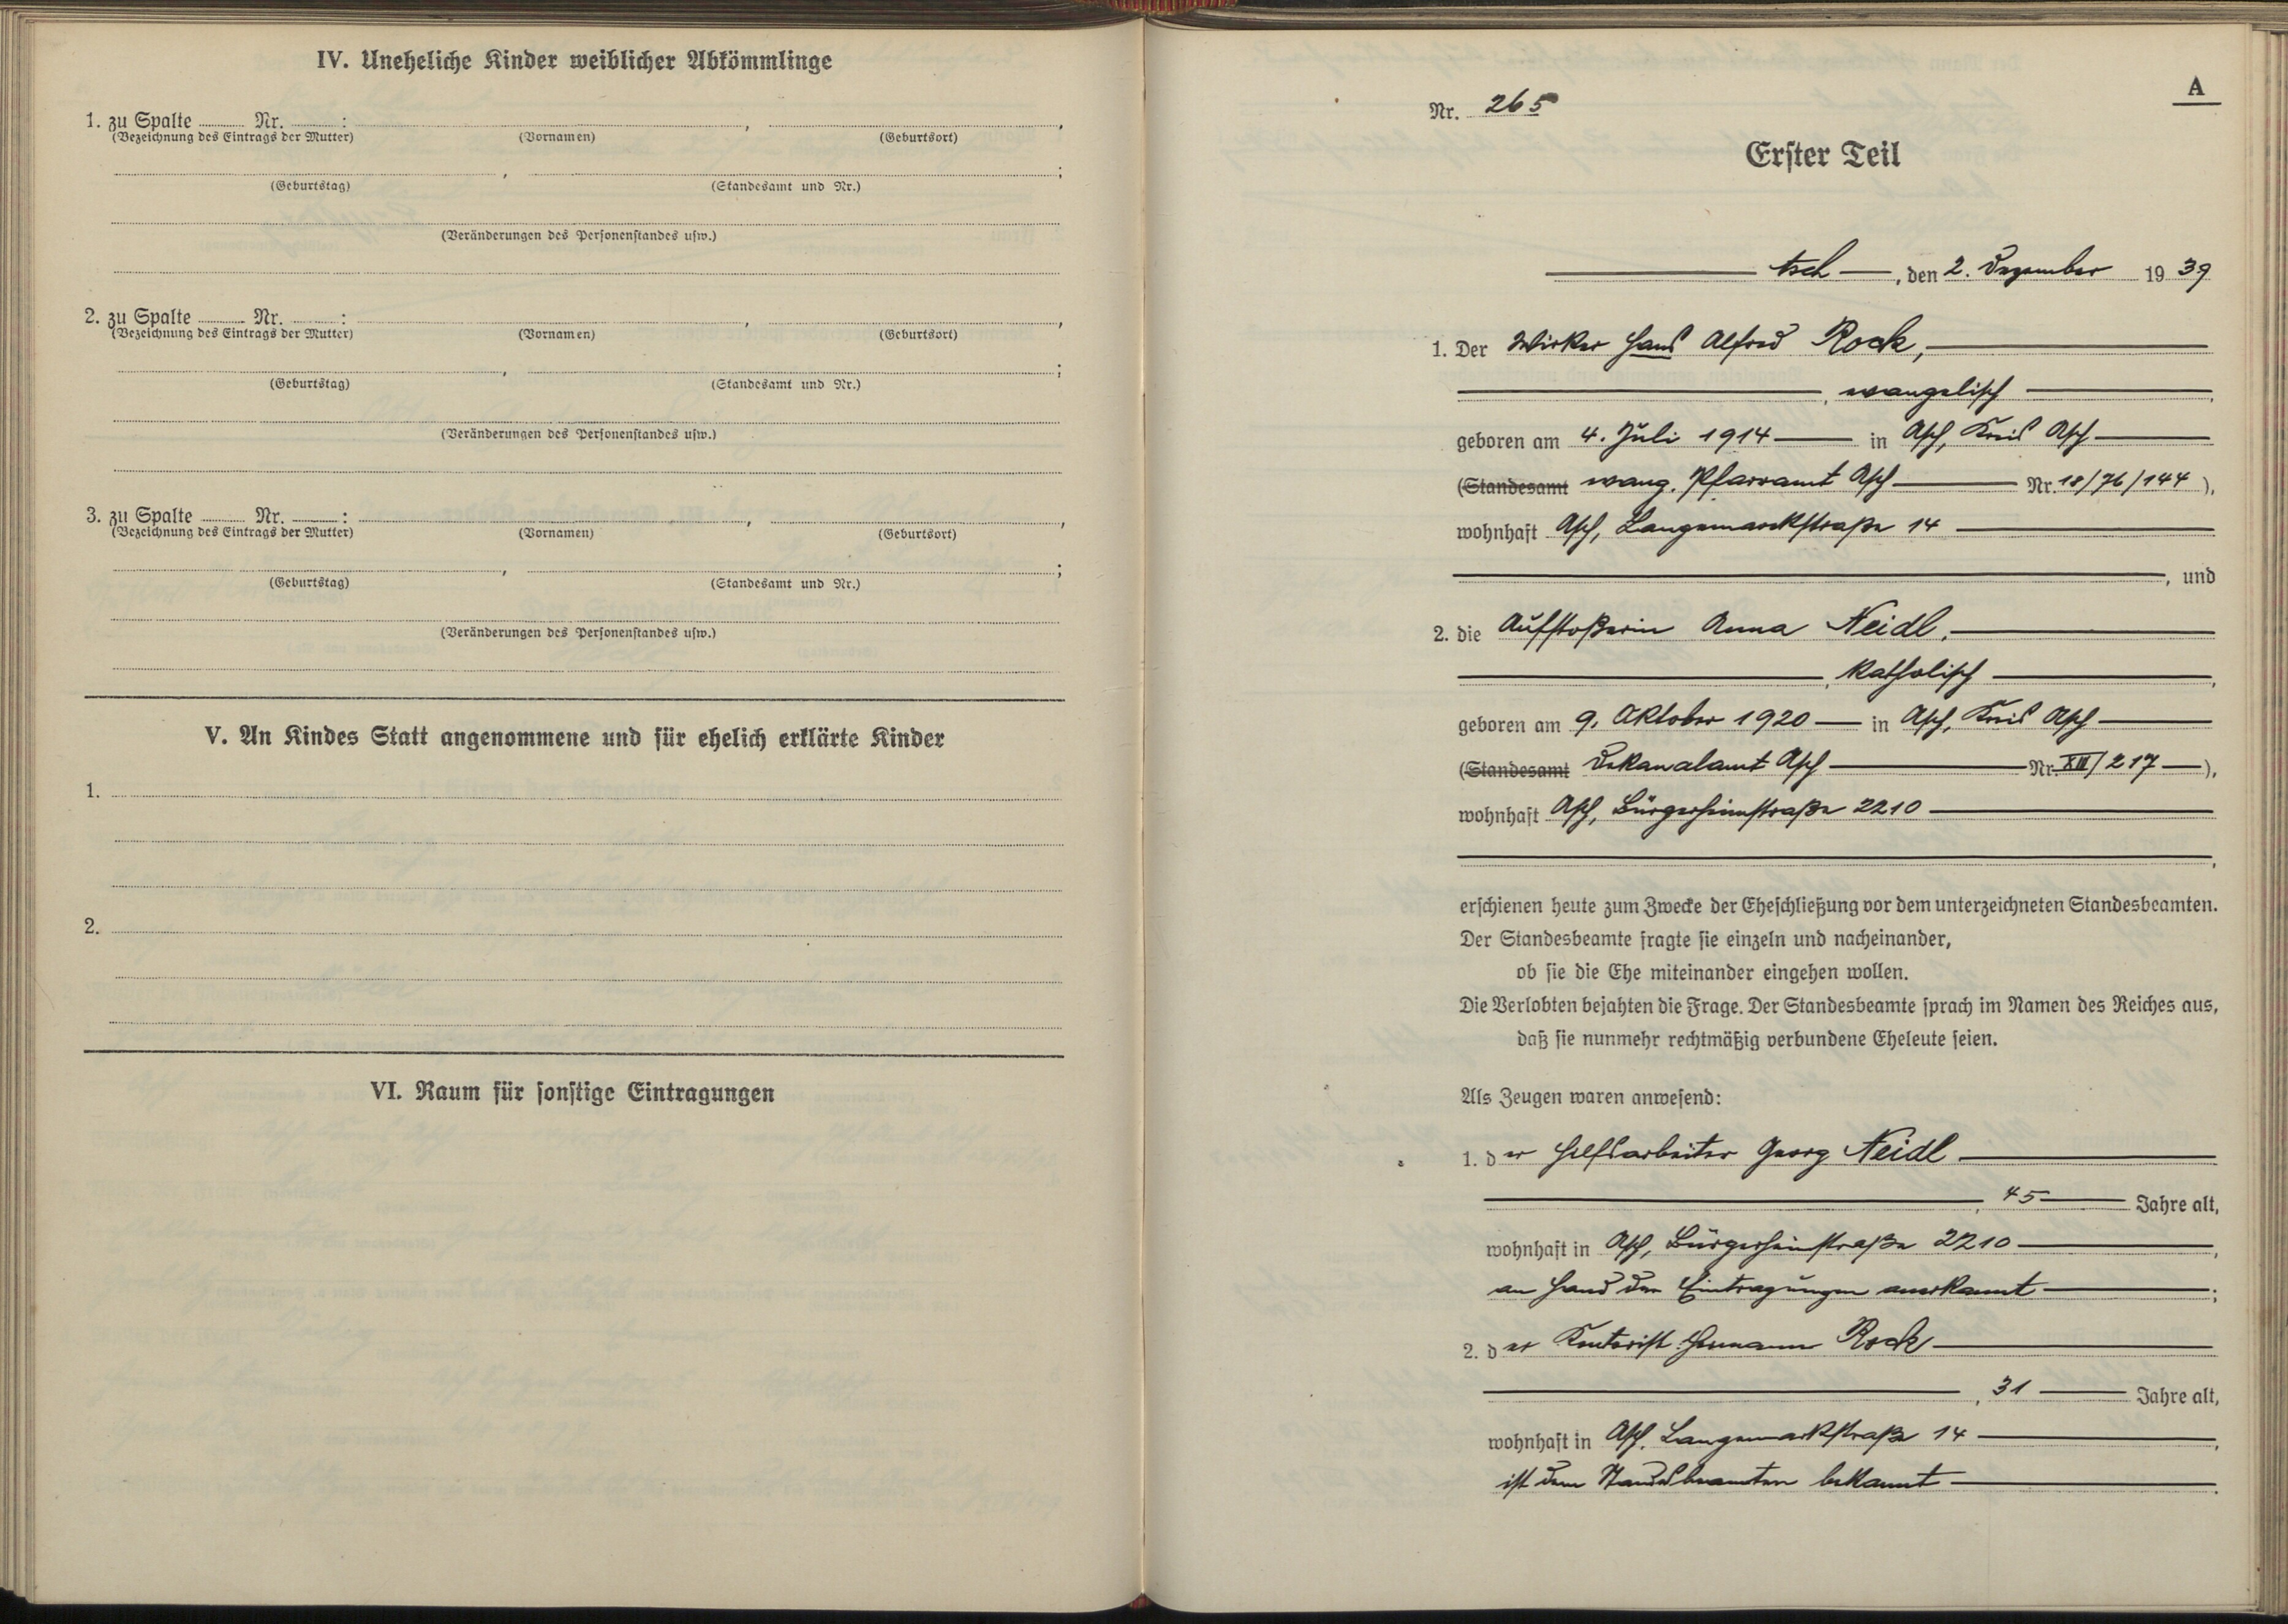 IV. Uneheliche Kinder weiblicher Abkömmlinge
1. zu Spalte ........ Nr. ........ : , ,
(Bezeichnung des Eintrags der Mutter) (Vornamen) (Geburtsort)
, ;
(Geburtstag) (Standesamt und Nr.)
(Veränderungen des Personenstandes usw.)
2. zu Spalte ........ Nr. ........ : , ,
(Bezeichnung des Eintrags der Mutter) (Vornamen) (Geburtsort)
, ;
(Geburtstag) (Standesamt und Nr.)
(Veränderungen des Personenstandes usw.)
3. zu Spalte ........ Nr. ........ : , ,
(Bezeichnung des Eintrags der Mutter) (Vornamen) (Geburtsort)
, ;
(Geburtstag) (Standesamt und Nr.)
(Veränderungen des Personenstandes usw.)
V. An Kindes Statt angenommene und für ehelich erklärte Kinder
1.
2.
VI. Raum für sonstige Eintragungen
A
Nr. 265
Erster Teil
Asch, den 2. Dezember 1939
1. Der Wirker Hans Alfred Rock,
, evangelisch,
geboren am 4. Juli 1914 in Asch, Kreis Asch
(Standesamt evang. Pfarramt Asch Nr. 18/76/144),
wohnhaft Asch, Langemarckstraße 14
, und
2. die Aufstoßerin Anna Neidl,
, katholisch,
geboren am 9. Oktober 1920 in Asch, Kreis Asch
(Standesamt Dekanalamt Asch Nr. XIII/217),
wohnhaft Asch, Bürgerheimstraße 2210
,
erschienen heute zum Zwecke der Eheschließung vor dem unterzeichneten Standesbeamten.
Der Standesbeamte fragte sie einzeln und nacheinander,
ob sie die Ehe miteinander eingehen wollen.
Die Verlobten bejahten die Frage. Der Standesbeamte sprach im Namen des Reiches aus,
daß sie nunmehr rechtmäßig verbundene Eheleute seien.
Als Zeugen waren anwesend:
1. der Hilfsarbeiter Georg Neidl
, 45 Jahre alt,
wohnhaft in Asch, Bürgerheimstraße 2210,
an Hand der Eintragungen anerkannt;
2. der Kontorist Hermann Rock
, 31 Jahre alt,
wohnhaft in Asch, Langemarkstraße 14,
ist dem Standesbeamten bekannt.